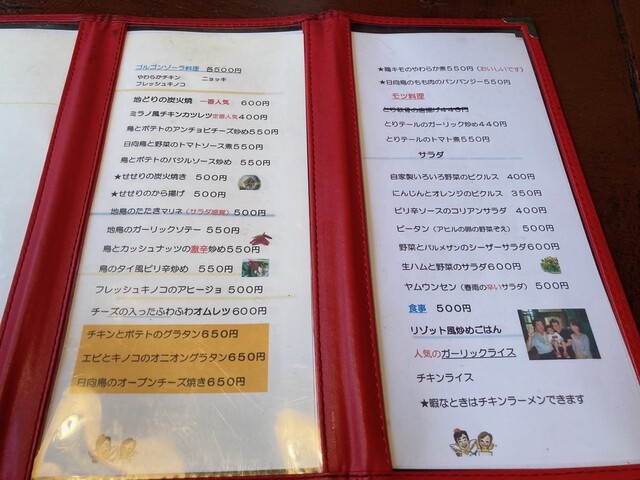 ゴルゴンゾーラ料理　各500円
やわらかチキン　ニョッキ
フレッシュキノコ
地どりの炭火焼　一番人気　600円
ミラノ風チキンカツレツ定番人気400円
鳥とポテトのアンチョビチーズ炒め550円
日向鳥と野菜のトマトソース煮550円
鳥とポテトのバジルソース炒め　550円
★せせりの炭火焼き　500円
★せせりのから揚げ　500円
地鳥のたたきマリネ（サラダ感覚）500円
地鳥のガーリックソテー　550円
鳥とカッシュナッツの激辛炒め550円
鳥のタイ風ピリ辛炒め　550円
フレッシュキノコのアヒージョ　500円
チーズの入ったふわふわオムレツ600円
チキンとポテトのグラタン650円
エビとキノコのオニオングラタン650円
日向鳥のオーブンチーズ焼き650円
★鶏キモのやわらか煮550円（おいしいです）
★日向鳥のもも肉のバンバンジー550円
モツ料理
とり軟骨の唐揚げ440円
とりテールのガーリック炒め440円
とりテールのトマト煮550円
サラダ
自家製いろいろ野菜のピクルス　400円
にんじんとオレンジのピクルス　350円
ピリ辛ソースのコリアンサラダ　400円
ピータン（アヒルの卵の野菜ぞえ）　500円
野菜とパルメザンのシーザーサラダ600円
生ハムと野菜のサラダ600円
ヤムウンセン（春雨の辛いサラダ）　500円
食事　500円
リゾット風炒めごはん
人気のガーリックライス
チキンライス
★暇なときはチキンラーメンできます